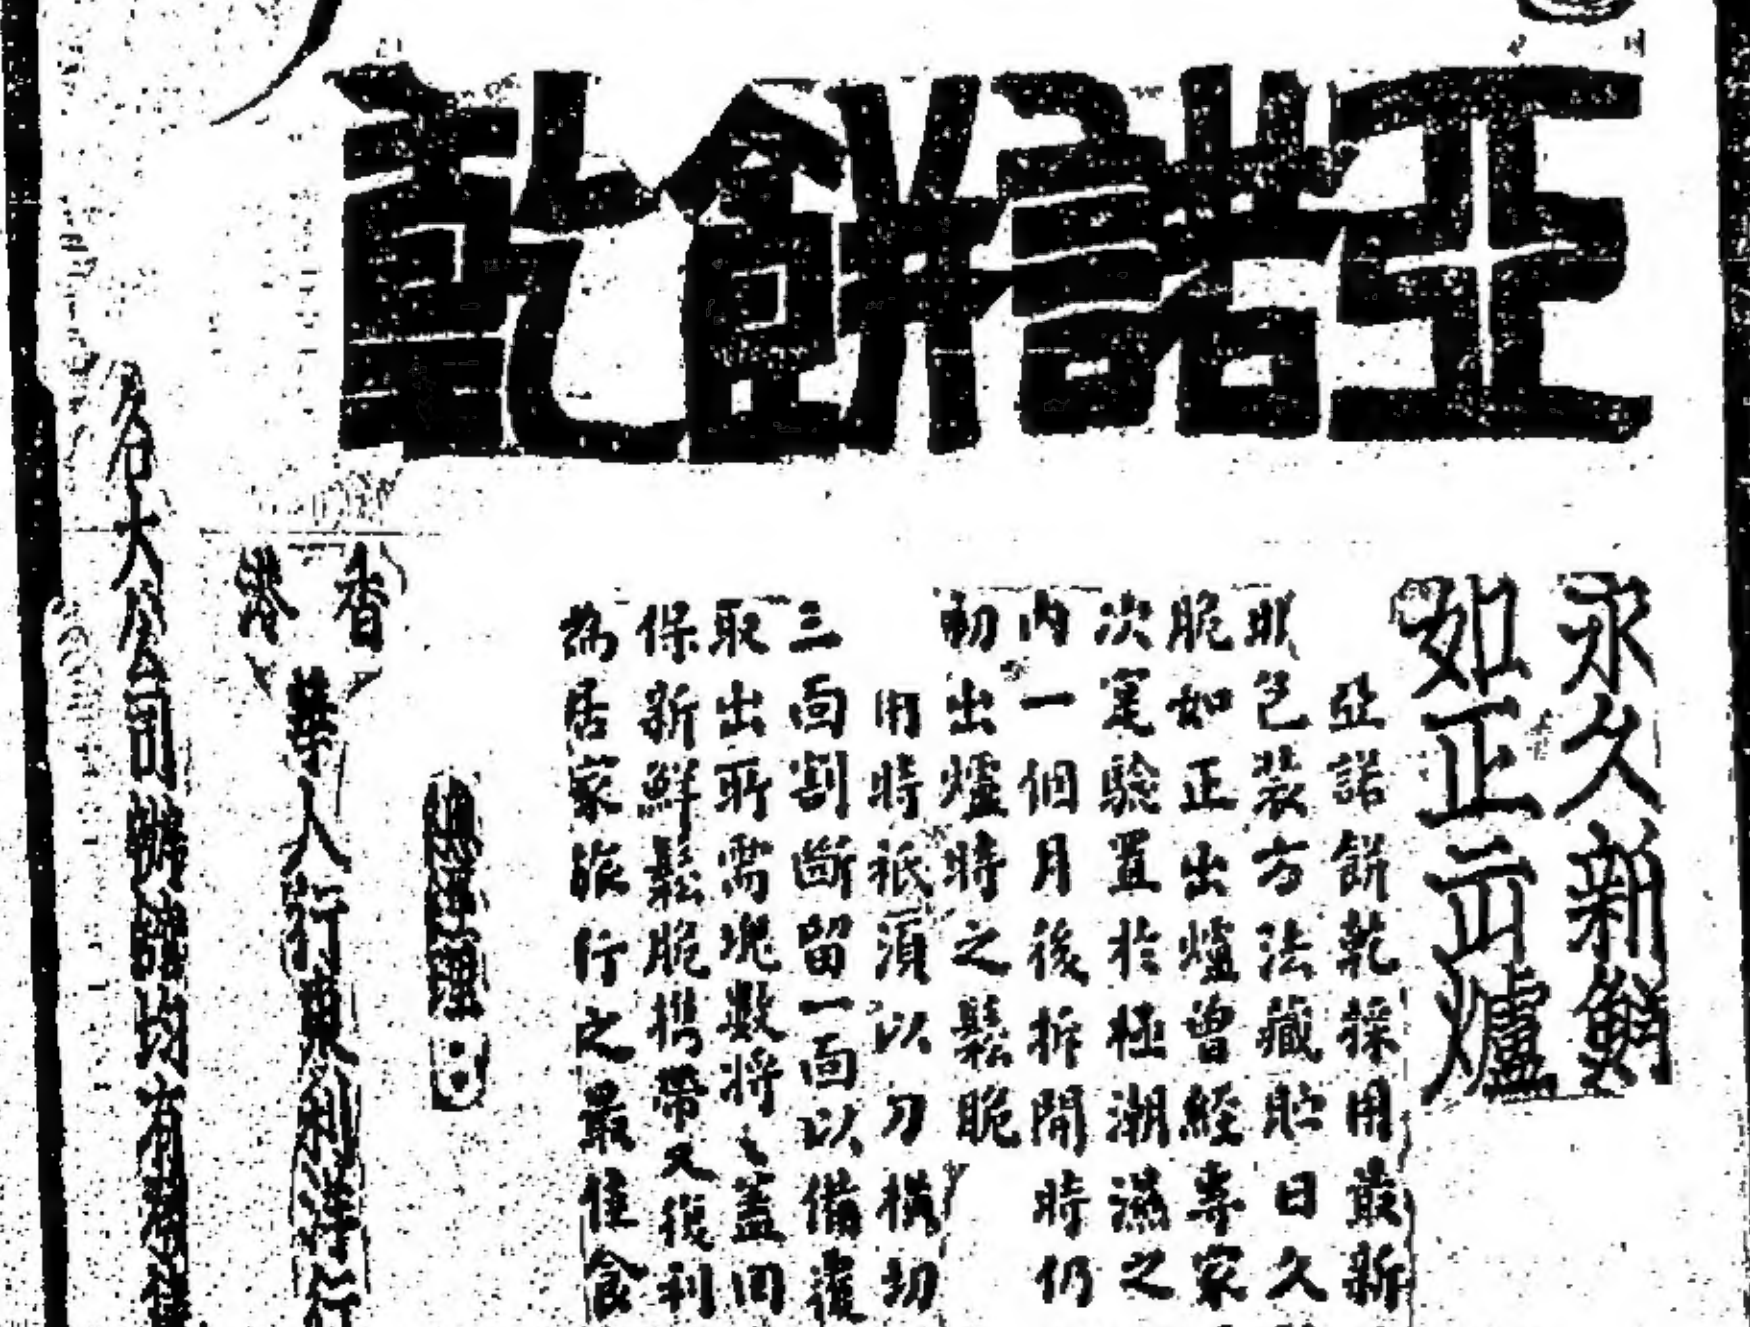 亞諾餅乾
永久新鮮
如正出爐
亞諾餅乾採用最新
包裝方法藏貯日久
脆如正出爐曾經專家
次寔驗置於極潮濕之
內一個月後拆開時仍
初出爐時之鬆脆
用時祗須以刀橫切
三面割斷留一面以備覆
取出所需塊數將、蓋回
保新鮮鬆脆携帶又復利
為居家旅行之最佳食
香港
華人行 利洋行
大公司 均有